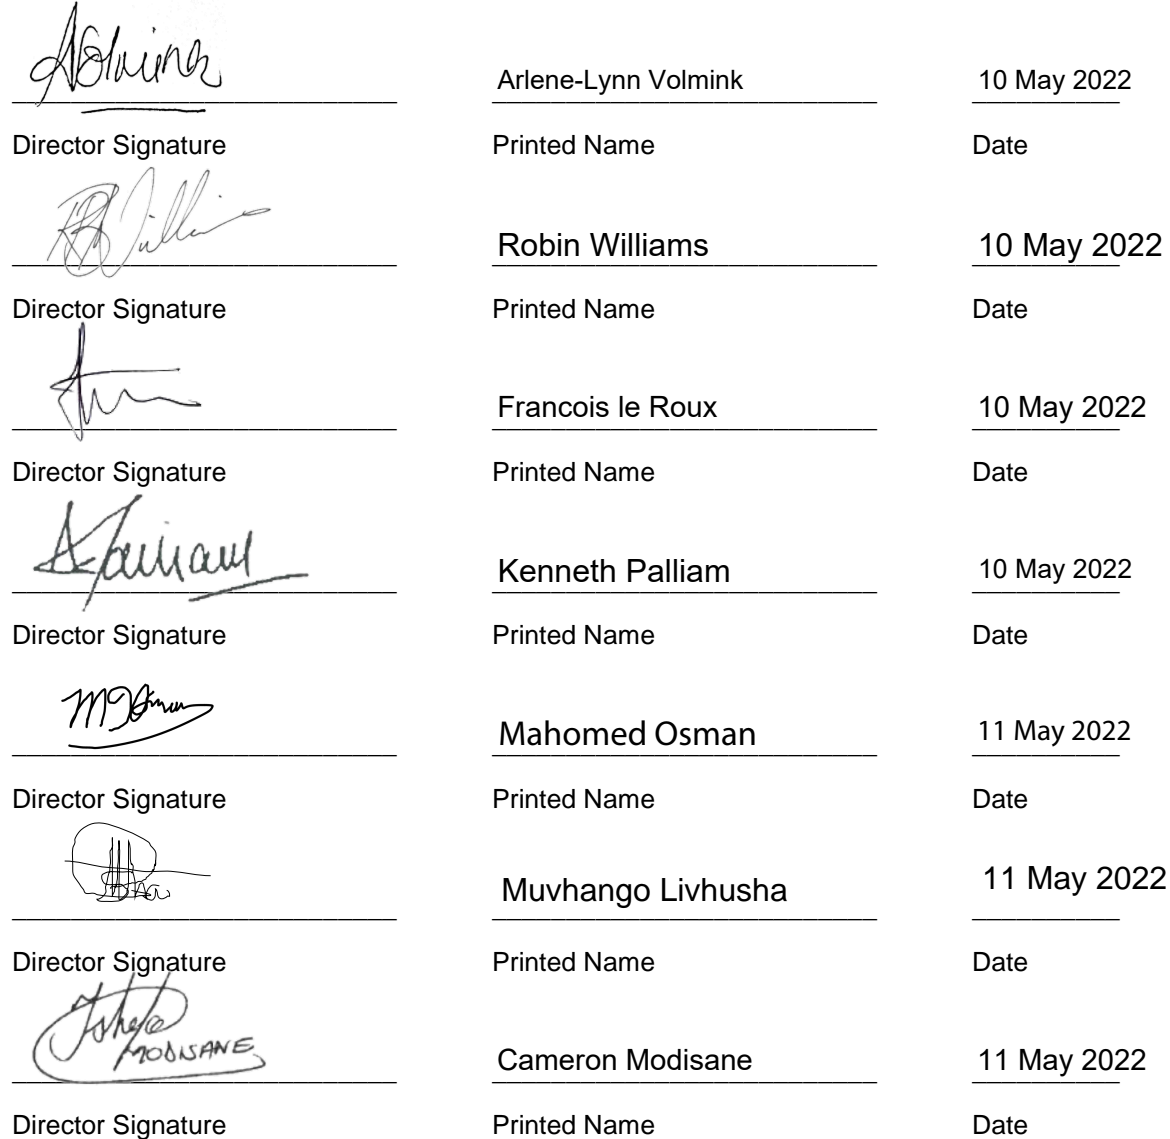 Arlene-Lynn Volmink 10 May 2022
Director Signature Printed Name Date
Robin Williams 10 May 2022
Director Signature Printed Name Date
Francois le Roux 10 May 2022
Director Signature Printed Name Date
Kenneth Palliam 10 May 2022
Director Signature Printed Name Date
Mahomed Osman 11 May 2022
Director Signature Printed Name Date
Muvhango Livhusha 11 May 2022
Director Signature Printed Name Date
MODISANE Cameron Modisane 11 May 2022
Director Signature Printed Name Date